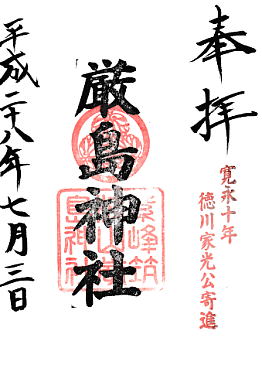 奉拝
寛永十年
徳川家光公寄進
厳島神社
平成二十八年七月三日